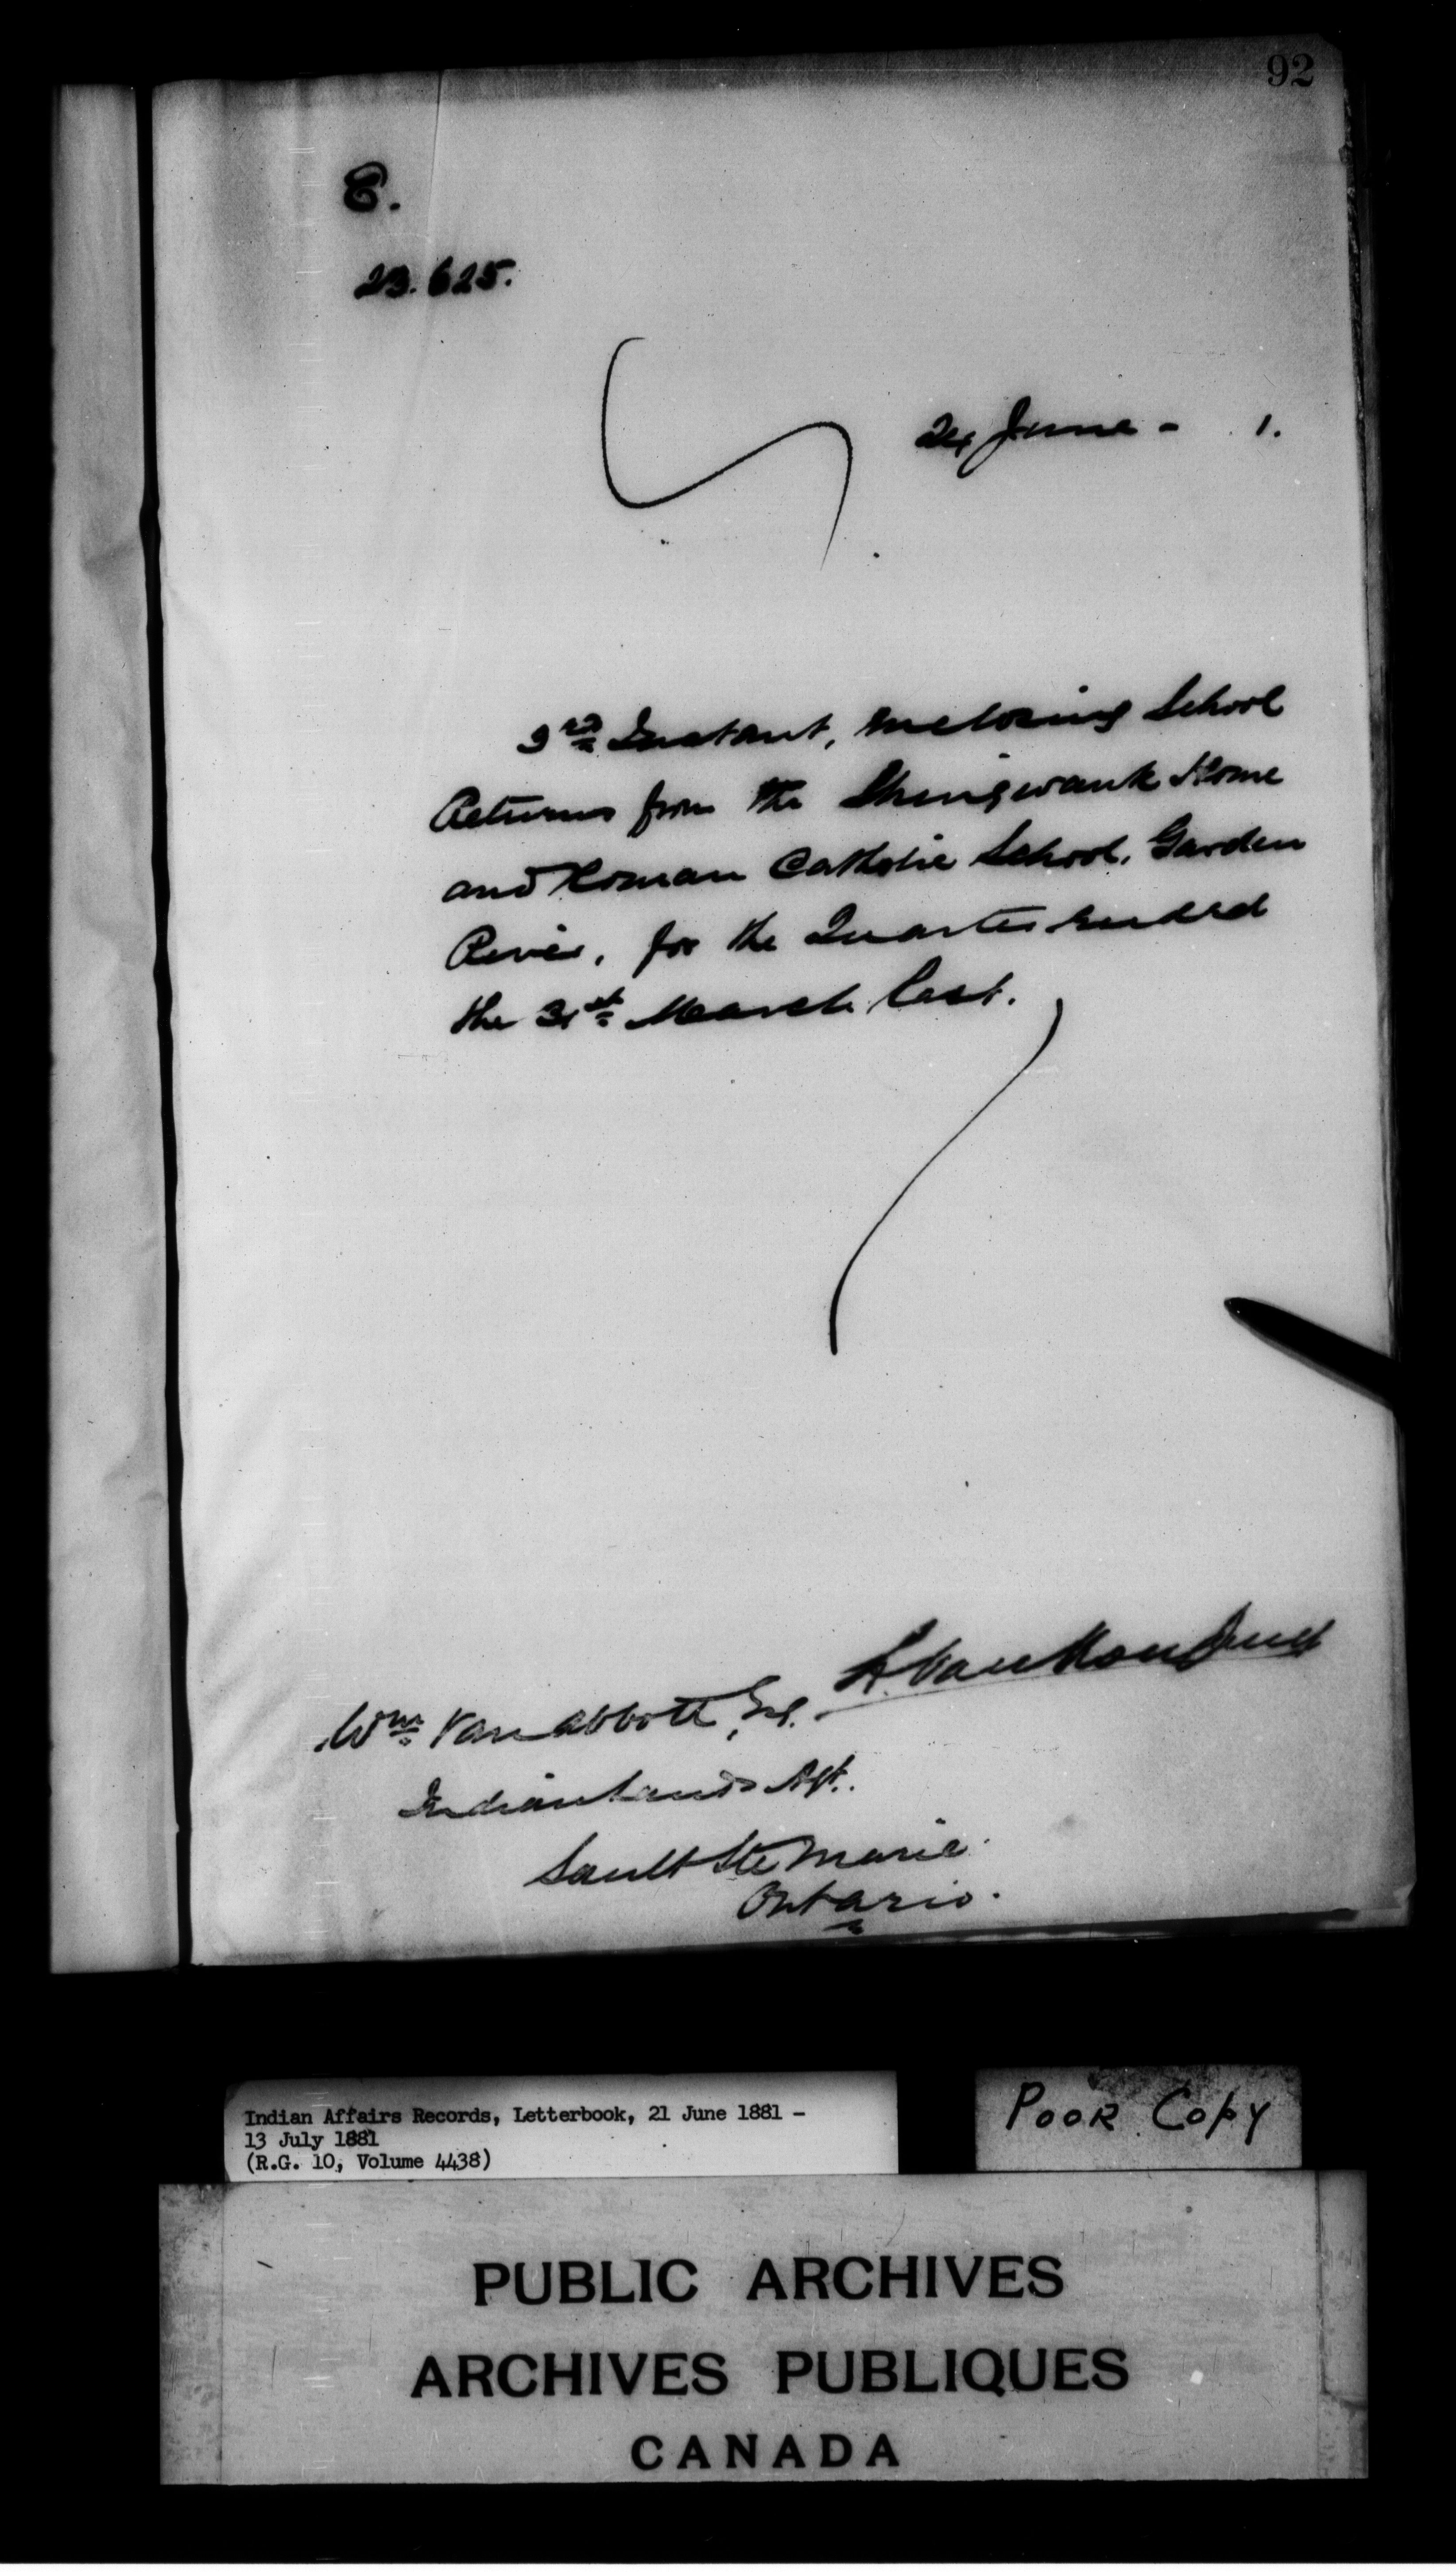 92
E.
23.625.
24 June - 1.
3rd Instant, enclosing School
Returns from the Shingwauk Home
and Roman Catholic School, Garden
River, for the Quarter ended
the 31st March last.
L. Vankoughnet
Wm Van Abbott, Esq.
Indian Lands Agt.
Sault Ste Marie
Ontario.
Indian Affairs Records, Letterbook, 21 June 1881 -
13 July 1881
(R.G. 10, Volume 4438)
POOR COPY
PUBLIC ARCHIVES
ARCHIVES PUBLIQUES
CANADA